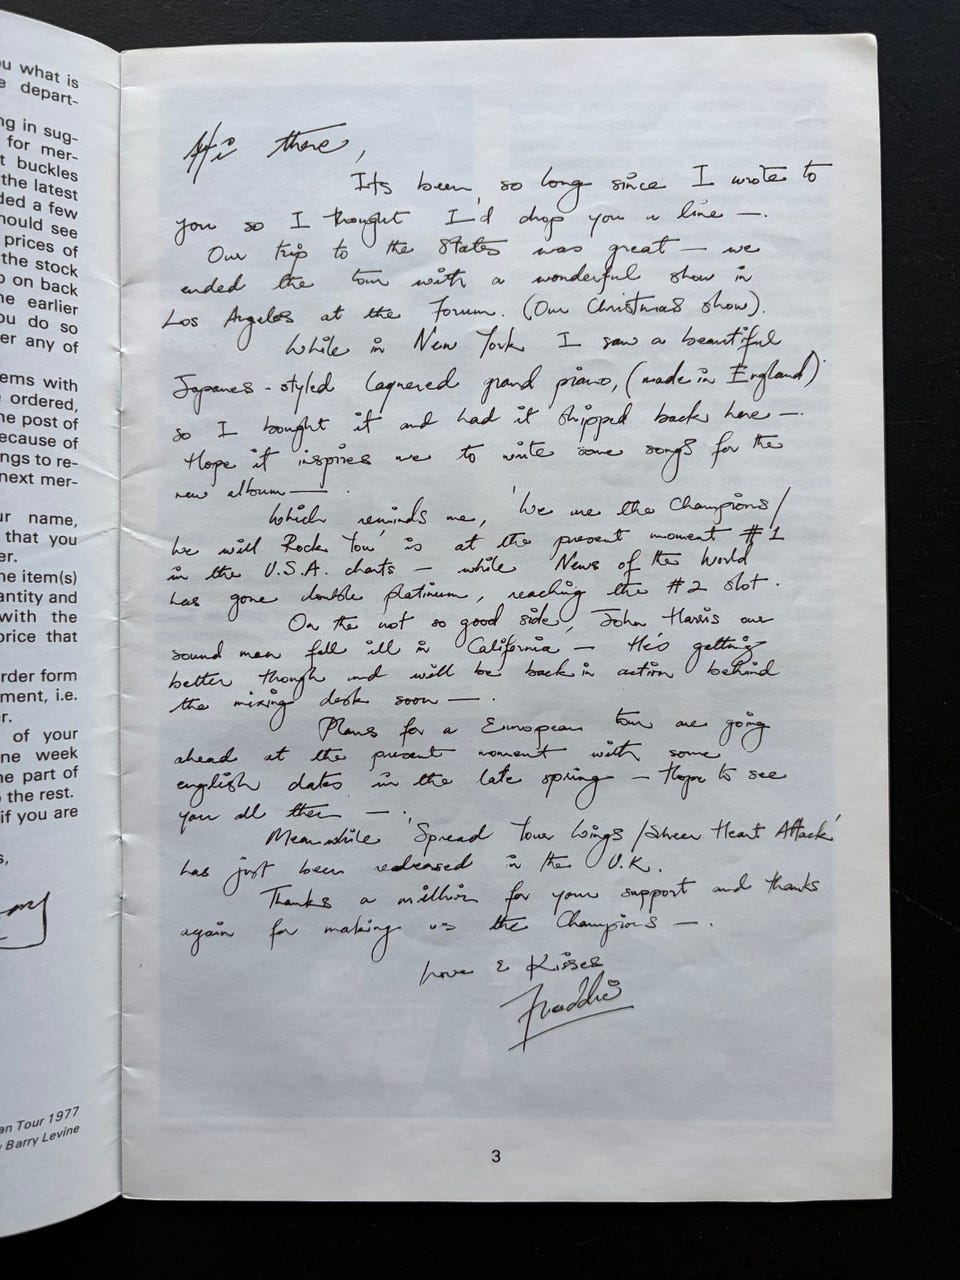 u what is
e depart-
ng in sug-
for mer-
t buckles
the latest
ded a few
hould see
prices of
the stock
o on back
he earlier
ou do so
er any of
ems with
e ordered,
he post of
ecause of
ngs to re-
next mer-
ur name,
that you
er.
he item(s)
antity and
with the
orice that
rder form
ment, i.e.
r.
of your
ne week
he part of
o the rest.
if you are
s,
an Tour 1977
y Barry Levine
Hi there,
Its been so long since I wrote to
you so I thought I'd drop you a line —.
Our trip to the States was great — we
ended the tour with a wonderful show in
Los Angeles at the Forum. (Our Christmas show).
While in New York I saw a beautiful
Japanes-styled laqnered grand piano, (made in England)
so I bought it and had it shipped back here —.
Hope it inspires me to write some songs for the
new album —.
Which reminds me, 'We are the Champions/
We will Rock You' is at the present moment #1
in the U.S.A. charts — while News of the World
has gone double platinum, reaching the #2 slot.
On the not so good side, John Harris our
sound man fell ill in California — He's getting
better though and will be back in action behind
the mixing desk soon —.
Plans for a European tour are going
ahead at the present moment with some
english dates in the late spring — Hope to see
you all then —.
Meanwhile 'Spread Your Wings / Sheer Heart Attack'
has just been released in the U.K.
Thanks a million for your support and thanks
again for making us the Champions —.
Love & Kisses
Freddie
3